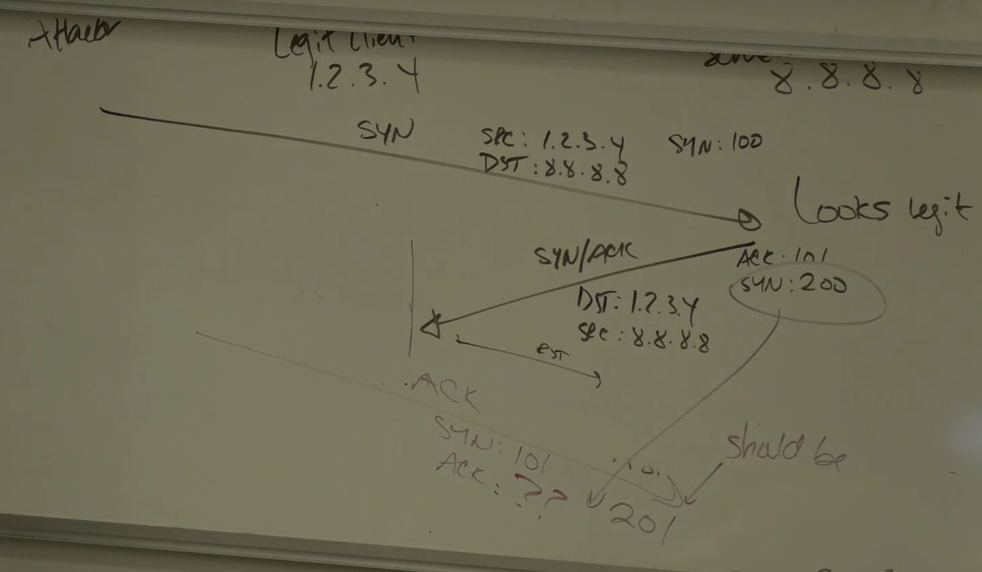 Attacker
Legit Client
1.2.3.4
8.8.8.8
SYN
SRC: 1.2.3.4
DST: 8.8.8.8
SYN: 100
Looks legit
SYN/ACK
ACK: 101
SYN: 200
DST: 1.2.3.4
SRC: 8.8.8.8
ACK
SYN: 101
ACK: ??
201
should be